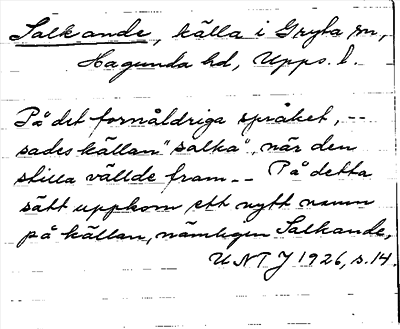 Salkande, källa i Gryta sn,
Hagunda hd, Upps. l.
På det fornåldriga språket, --
sades källan "salka", när den
stilla vällde fram -- På detta
sätt uppkom ett nytt namn
på källan, nämligen Salkande,
UNT J 1926, s. 14.